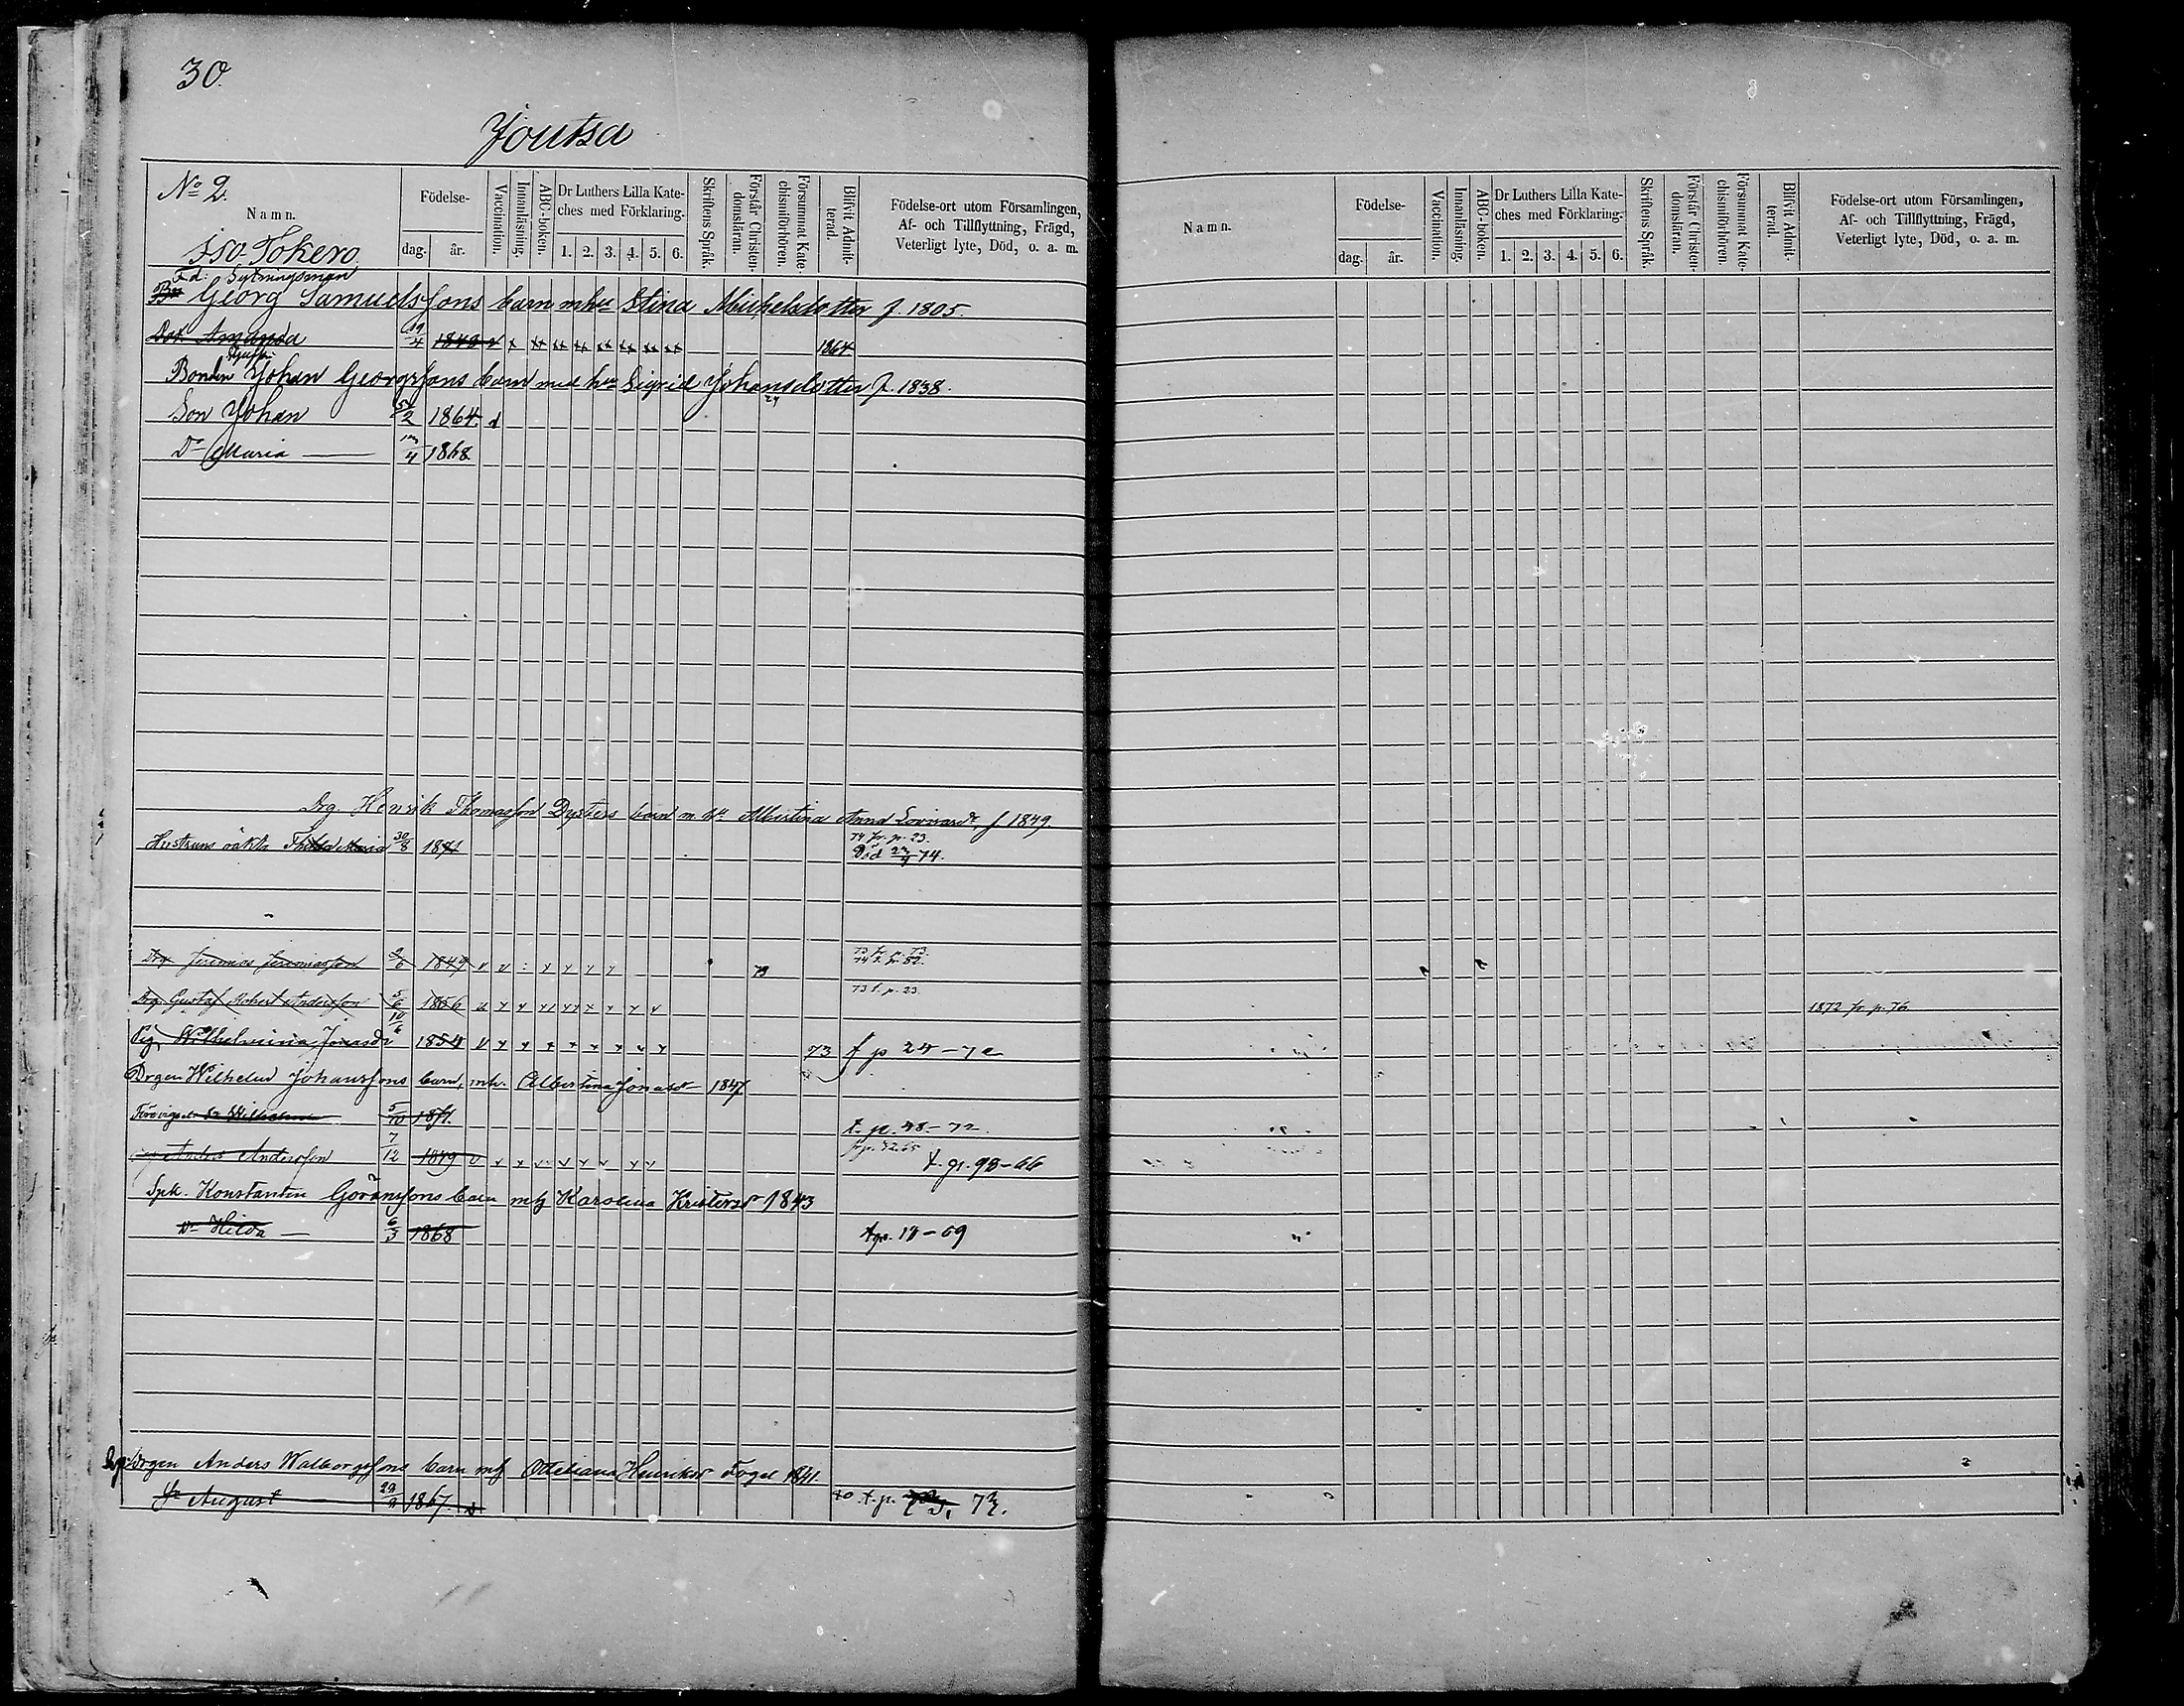 30.
Joutsa
No 2.
Namn.
Födelse-
dag. år.
Vaccination.
Innanläsning.
ABC-boken.
Dr Luthers Lilla Kate-
ches med Förklaring.
1. 2. 3. 4. 5. 6.
Skriftens Språk.
Förstår Christen-
domsläran.
Försummat Kate-
chismiförhören.
Blifvit Admit-
terad.
Födelse-ort utom Församlingen,
Af- och Tillflyttning, Frägd,
Veterligt lyte, Död, o. a. m.
Iso-Tokero
F.d. Sytningsman
Georg Samuelssons barn m hu Stina Michelsdotter f. 1805.
Dot. Amanda 19/4 1848 1864
Bonden Johan Georgssons barn med hu Sigrid Johansdotter f. 1838.
Son Johan 2 1864.
Dr Maria 4 1868
Drg. Henrik Thomasson Dysters barn m. Albertina Anna f. 1849.
74 fr. p. 23.
Hustruns oäkta Maria 30/8 1871 Död 74.
Drg Jeremias Jeremiasson 6 1849 73
Drg. Gustaf Robert Andersson 5/6 1856 73 t. p. 23.
Pig. Wilhelmina Jonasdr 10/6 1854 73 f p 24-72
Drgen Wilhelm Johanssons barn, mh. Albertina Jonasdr 1847.
5/10 1871. t. p. 48-72.
Anders Andersson 7/12 1849 t. p. 98-66
Spk. Konstantin Göranssons barn mh Karolina Kristersdr 1843
Dr Hilda 6/3 1868 t. p. 18-69
Drgen Anders Walborgssons barn mh Henriksdr Fogel 1841.
August 1867. t. p. 73.
Namn.
Födelse-
dag. år.
Vaccination.
Innanläsning.
ABC-boken.
Dr Luthers Lilla Kate-
ches med Förklaring.
1. 2. 3. 4. 5. 6.
Skriftens Språk.
Förstår Christen-
domsläran.
Försummat Kate-
chismiförhören.
Blifvit Admit-
terad.
Födelse-ort utom Församlingen,
Af- och Tillflyttning, Frägd,
Veterligt lyte, Död, o. a. m.
1872 fr. p. 76.